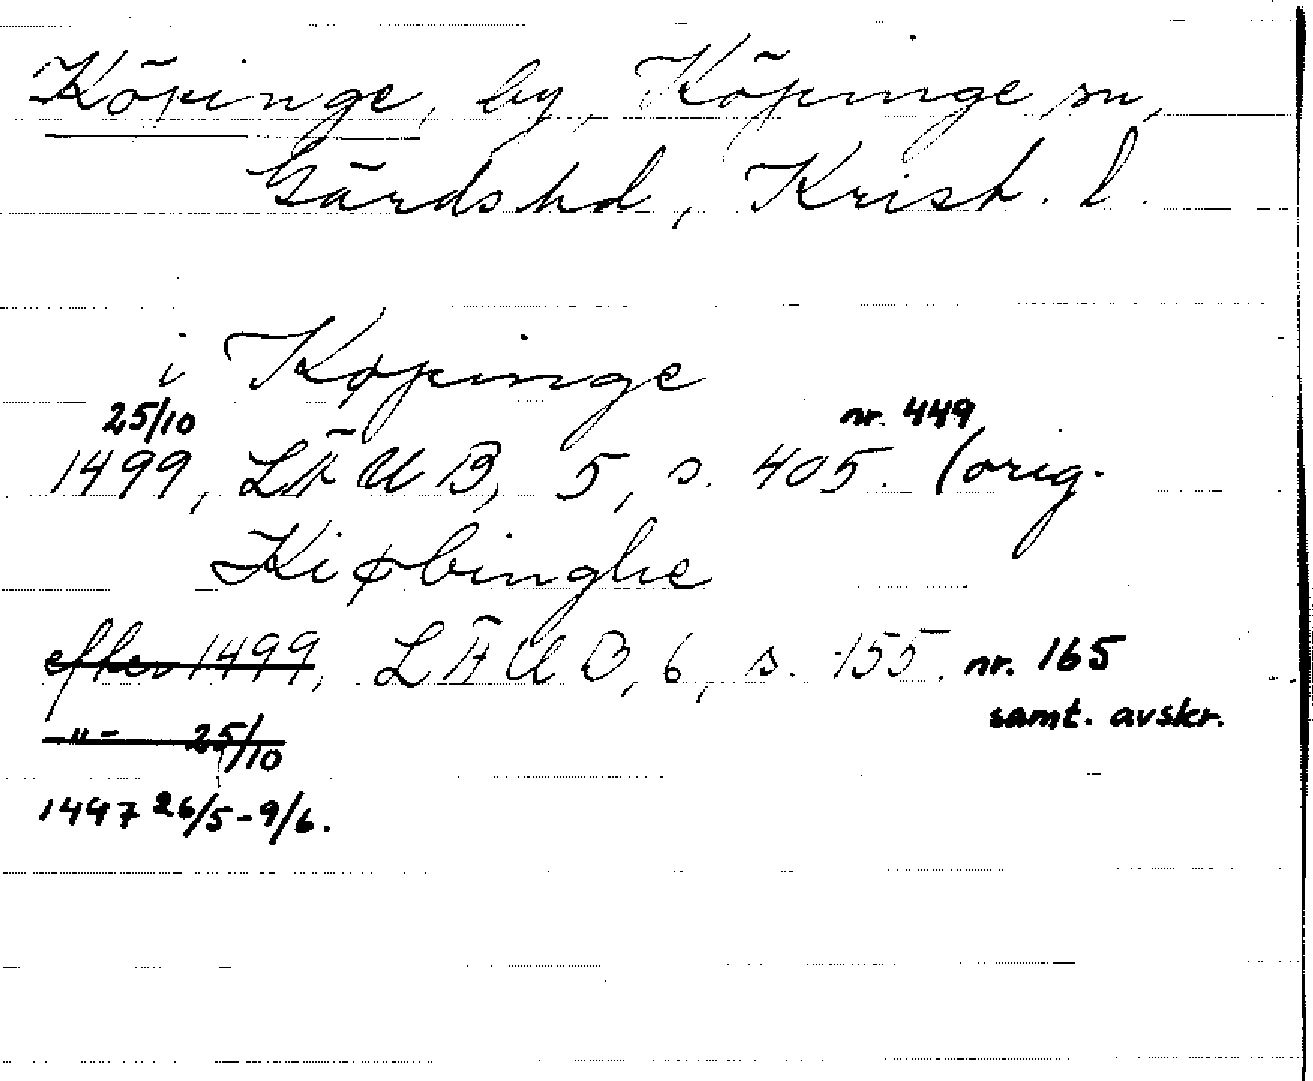 Köpinge, by, Köpinge sn,
Gärds hd, Krist. l.
i Köpinge
25/10 nr. 449
1499, LÄUB, 5, s. 405. (orig.
Kiøbinghe
efter 1499, LÄUB, 6, s. 155. nr. 165
samt. avskr.
-"- 25/10
1497 26/5-9/6.